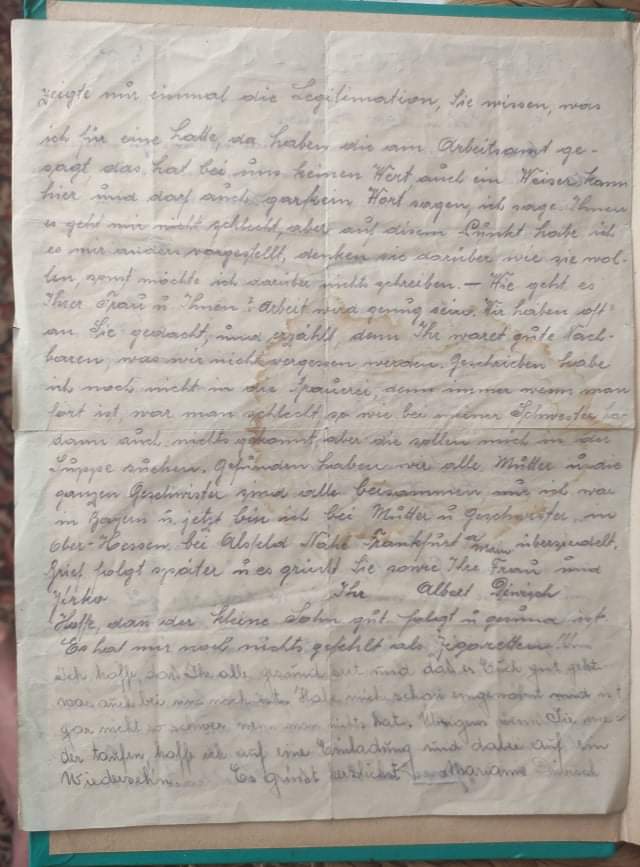 zeigte nur einmal die Legitimation, Sie wissen, was
ich für eine hatte, da haben die am Arbeitsamt ge-
sagt das hat bei uns keinen Wert, auch ein Weiser kann
hier und darf auch garkein Wort sagen, ich sage Ihnen
es geht mir nicht schlecht, aber auf disem Punkt habe ich
es mir anders vorgestellt, denken sie darüber wie sie wol-
len, sonst möchte ich darüber nichts schreiben. — Wie geht es
Ihrer Frau u Ihnen? Arbeit wird genug sein. Wir haben oft
an Sie gedacht, und erzählt, denn Ihr waret gute Nach-
baren, was wir nicht vergessen werden. Geschrieben habe
ich noch nicht in die Brauerei, denn immer wenn man
fort ist, war man schlecht so wie bei meiner Schwester
dann auch nichts gekonnt, aber die sollen mich in der
Suppe suchen. Gefunden haben wir alle, Mutter u die
ganzen Geschwister sind alle beisammen, nur ich war
in Bayern u. jetzt bin ich bei Mutter u Geschwister in
Ober-Hessen bei Alsfeld Nähe Frankfurt a/Main übersiedelt.
Brief folgt später u es grüsst Sie sowie Ihre Frau und
Jirko Ihr Albert
Hoffe, dass der kleine Sohn gut folgt u gesund ist.
Es hat mir noch nichts gefehlt als Zigaretten!
Ich hoffe, dass Ihr alle gesund seit und daß es Euch gut geht
was auch bei uns noch ist. Habe mich schon eingewöhnt und ist
gar nicht so schwer wenn man nichts hat. Übrigens wenn Sie wie-
der taufen, hoffe ich auf eine Einladung und daher auf ein
Wiedersehn. Es grüsst herzlichst Marianne